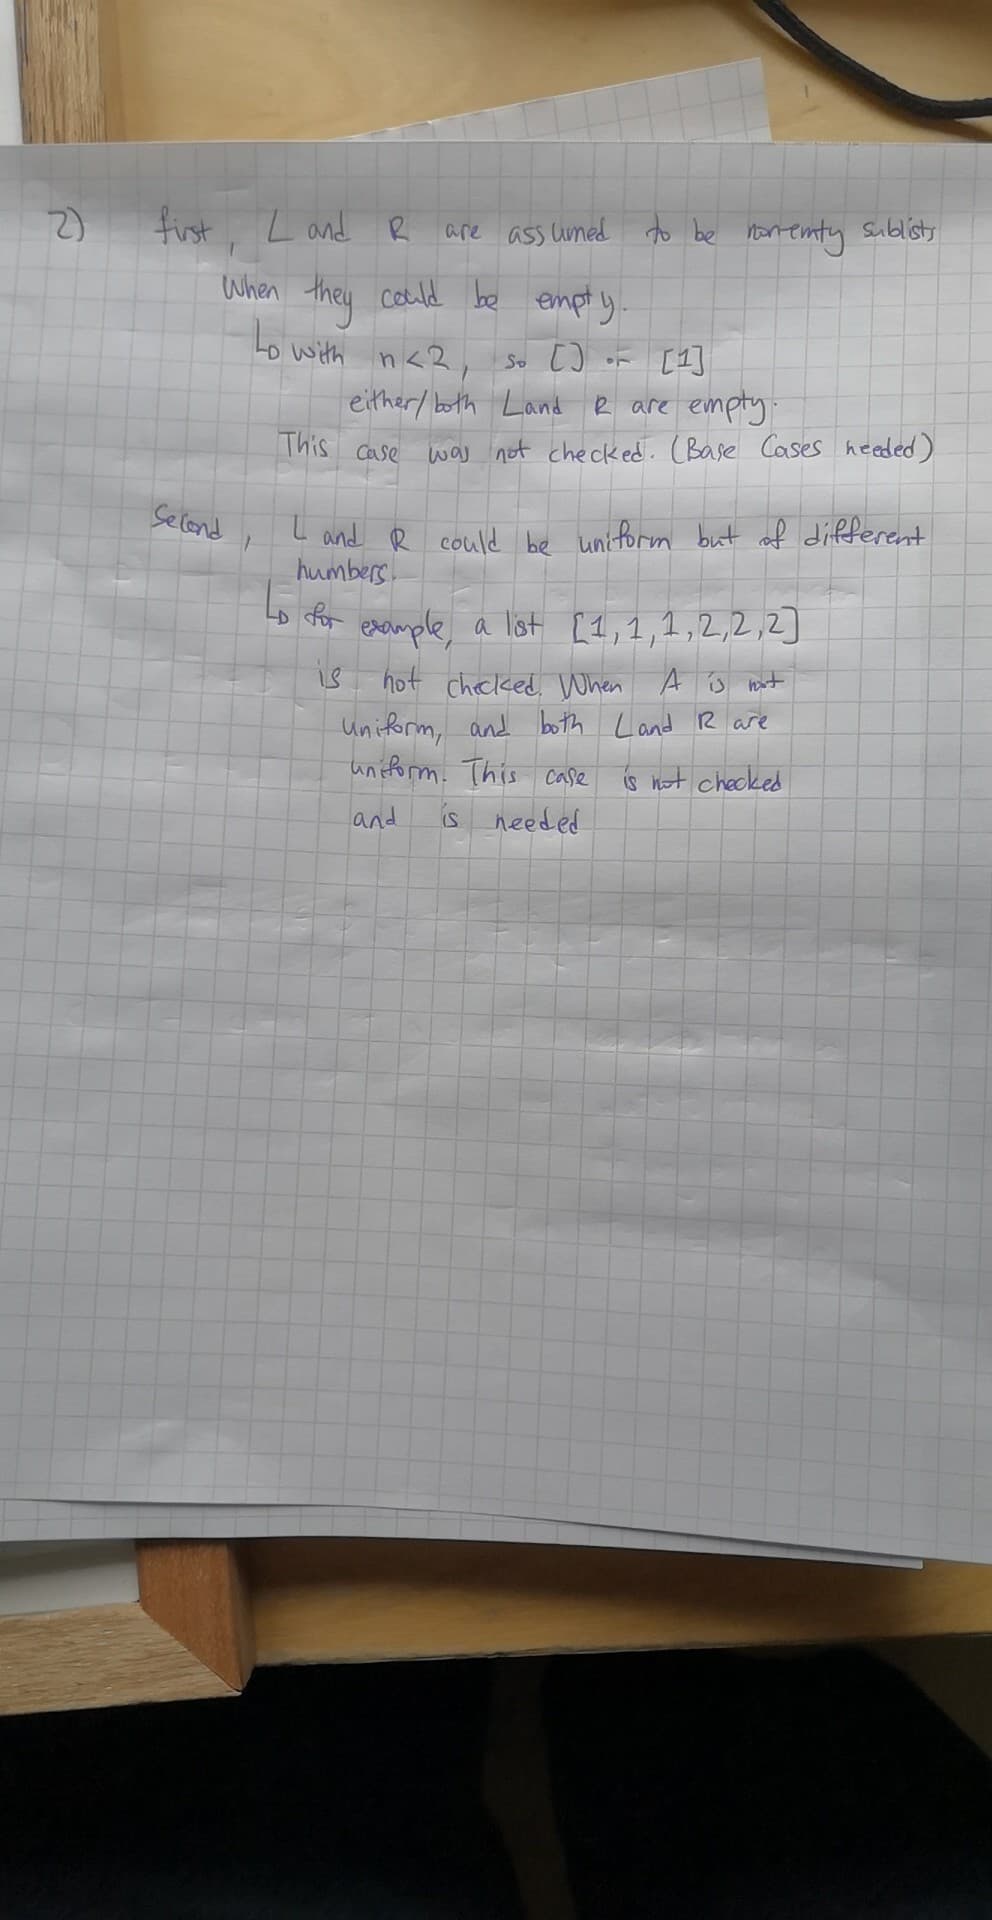 2) first, L and R are assumed to be non-emty sublists
When they could be empty.
↳ with n<2, so [] or [1]
either/both L and R are empty.
This case was not checked. (Base Cases needed)
Second, L and R could be uniform but of different
numbers.
↳ for example, a list [1,1,1,2,2,2]
is not checked. When A is not
uniform, and both L and R are
uniform. This case is not checked
and is needed